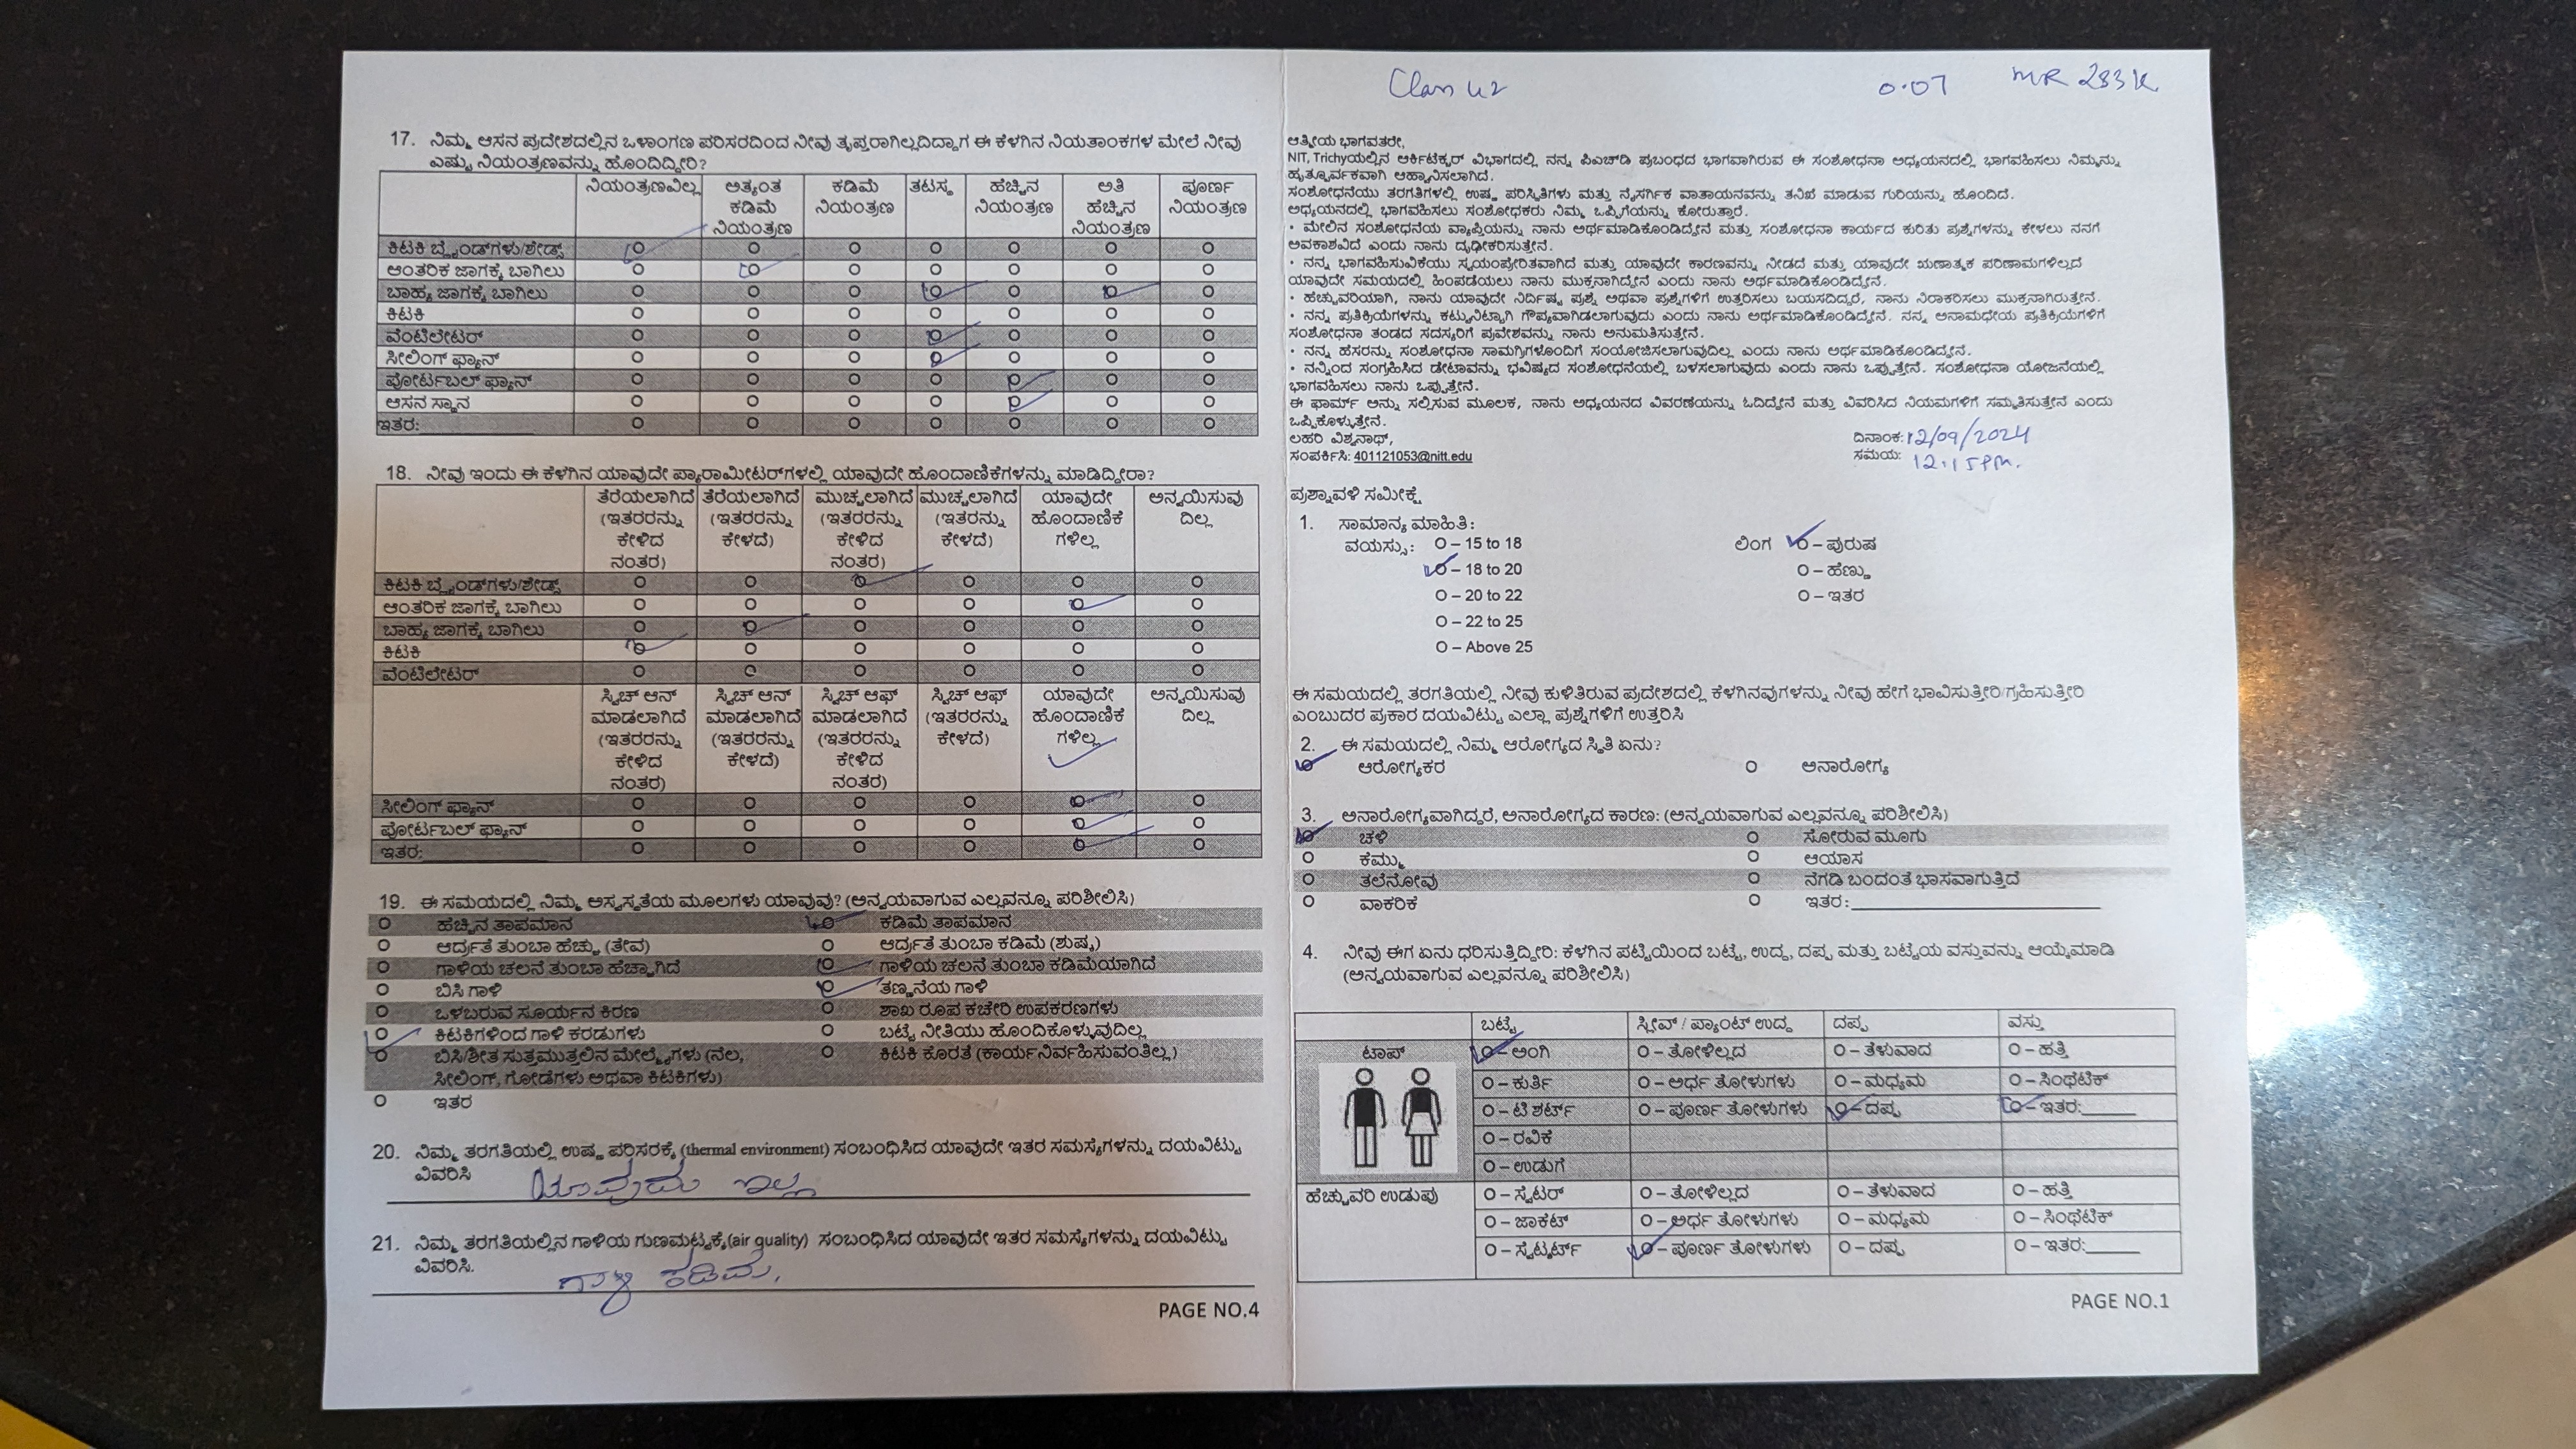 17. ನಿಮ್ಮ ಆಸನ ಪ್ರದೇಶದಲ್ಲಿನ ಒಳಾಂಗಣ ಪರಿಸರದಿಂದ ನೀವು ತೃಪ್ತರಾಗಿಲ್ಲದಿದ್ದಾಗ ಈ ಕೆಳಗಿನ ನಿಯತಾಂಕಗಳ ಮೇಲೆ ನೀವು
ಎಷ್ಟು ನಿಯಂತ್ರಣವನ್ನು ಹೊಂದಿದ್ದೀರಿ?
ನಿಯಂತ್ರಣವಿಲ್ಲ ಅತ್ಯಂತ ಕಡಿಮೆ ನಿಯಂತ್ರಣ ಕಡಿಮೆ ನಿಯಂತ್ರಣ ತಟಸ್ಥ ಹೆಚ್ಚಿನ ನಿಯಂತ್ರಣ ಅತಿ ಹೆಚ್ಚಿನ ನಿಯಂತ್ರಣ ಪೂರ್ಣ ನಿಯಂತ್ರಣ
ಕಿಟಕಿ ಬ್ಲೈಂಡ್‌ಗಳು/ಶೇಡ್ಸ್
ಆಂತರಿಕ ಜಾಗಕ್ಕೆ ಬಾಗಿಲು
ಬಾಹ್ಯ ಜಾಗಕ್ಕೆ ಬಾಗಿಲು
ಕಿಟಕಿ
ವೆಂಟಿಲೇಟರ್
ಸೀಲಿಂಗ್ ಫ್ಯಾನ್
ಪೋರ್ಟಬಲ್ ಫ್ಯಾನ್
ಆಸನ ಸ್ಥಾನ
ಇತರ:
18. ನೀವು ಇಂದು ಈ ಕೆಳಗಿನ ಯಾವುದೇ ಪ್ಯಾರಾಮೀಟರ್‌ಗಳಲ್ಲಿ ಯಾವುದೇ ಹೊಂದಾಣಿಕೆಗಳನ್ನು ಮಾಡಿದ್ದೀರಾ?
ತೆರೆಯಲಾಗಿದೆ (ಇತರರನ್ನು ಕೇಳಿದ ನಂತರ) ತೆರೆಯಲಾಗಿದೆ (ಇತರರನ್ನು ಕೇಳದೆ) ಮುಚ್ಚಲಾಗಿದೆ (ಇತರರನ್ನು ಕೇಳಿದ ನಂತರ) ಮುಚ್ಚಲಾಗಿದೆ (ಇತರರನ್ನು ಕೇಳದೆ) ಯಾವುದೇ ಹೊಂದಾಣಿಕೆ ಗಳಿಲ್ಲ ಅನ್ವಯಿಸುವು ದಿಲ್ಲ
ಕಿಟಕಿ ಬ್ಲೈಂಡ್‌ಗಳು/ಶೇಡ್ಸ್
ಆಂತರಿಕ ಜಾಗಕ್ಕೆ ಬಾಗಿಲು
ಬಾಹ್ಯ ಜಾಗಕ್ಕೆ ಬಾಗಿಲು
ಕಿಟಕಿ
ವೆಂಟಿಲೇಟರ್
ಸ್ವಿಚ್ ಆನ್ ಮಾಡಲಾಗಿದೆ (ಇತರರನ್ನು ಕೇಳಿದ ನಂತರ) ಸ್ವಿಚ್ ಆನ್ ಮಾಡಲಾಗಿದೆ (ಇತರರನ್ನು ಕೇಳದೆ) ಸ್ವಿಚ್ ಆಫ್ ಮಾಡಲಾಗಿದೆ (ಇತರರನ್ನು ಕೇಳಿದ ನಂತರ) ಸ್ವಿಚ್ ಆಫ್ (ಇತರರನ್ನು ಕೇಳದೆ) ಯಾವುದೇ ಹೊಂದಾಣಿಕೆ ಗಳಿಲ್ಲ ಅನ್ವಯಿಸುವು ದಿಲ್ಲ
ಸೀಲಿಂಗ್ ಫ್ಯಾನ್
ಪೋರ್ಟಬಲ್ ಫ್ಯಾನ್
ಇತರ:
19. ಈ ಸಮಯದಲ್ಲಿ ನಿಮ್ಮ ಅಸ್ವಸ್ಥತೆಯ ಮೂಲಗಳು ಯಾವುವು? (ಅನ್ವಯವಾಗುವ ಎಲ್ಲವನ್ನೂ ಪರಿಶೀಲಿಸಿ)
ಹೆಚ್ಚಿನ ತಾಪಮಾನ ಕಡಿಮೆ ತಾಪಮಾನ
ಆರ್ದ್ರತೆ ತುಂಬಾ ಹೆಚ್ಚು (ತೇವ) ಆರ್ದ್ರತೆ ತುಂಬಾ ಕಡಿಮೆ (ಶುಷ್ಕ)
ಗಾಳಿಯ ಚಲನೆ ತುಂಬಾ ಹೆಚ್ಚಾಗಿದೆ ಗಾಳಿಯ ಚಲನೆ ತುಂಬಾ ಕಡಿಮೆಯಾಗಿದೆ
ಬಿಸಿ ಗಾಳಿ ತಣ್ಣನೆಯ ಗಾಳಿ
ಒಳಬರುವ ಸೂರ್ಯನ ಕಿರಣ ಶಾಖ ರೂಪ ಕಚೇರಿ ಉಪಕರಣಗಳು
ಕಿಟಕಿಗಳಿಂದ ಗಾಳಿ ಕರಡುಗಳು ಬಟ್ಟೆ ನೀತಿಯು ಹೊಂದಿಕೊಳ್ಳುವುದಿಲ್ಲ
ಬಿಸಿ/ಶೀತ ಸುತ್ತಮುತ್ತಲಿನ ಮೇಲ್ಮೈಗಳು (ನೆಲ, ಕಿಟಕಿ ಕೊರತೆ (ಕಾರ್ಯನಿರ್ವಹಿಸುವಂತಿಲ್ಲ)
ಸೀಲಿಂಗ್, ಗೋಡೆಗಳು ಅಥವಾ ಕಿಟಕಿಗಳು)
ಇತರ
20. ನಿಮ್ಮ ತರಗತಿಯಲ್ಲಿ ಉಷ್ಣ ಪರಿಸರಕ್ಕೆ (thermal environment) ಸಂಬಂಧಿಸಿದ ಯಾವುದೇ ಇತರ ಸಮಸ್ಯೆಗಳನ್ನು ದಯವಿಟ್ಟು
ವಿವರಿಸಿ ಯಾವುದು ಇಲ್ಲ
21. ನಿಮ್ಮ ತರಗತಿಯಲ್ಲಿನ ಗಾಳಿಯ ಗುಣಮಟ್ಟಕ್ಕೆ(air quality) ಸಂಬಂಧಿಸಿದ ಯಾವುದೇ ಇತರ ಸಮಸ್ಯೆಗಳನ್ನು ದಯವಿಟ್ಟು
ವಿವರಿಸಿ. ಗಾಳಿ ಕಡಿಮೆ.
PAGE NO.4
Class 42 0.07 MR 283K
ಆತ್ಮೀಯ ಭಾಗವತರೇ,
NIT, Trichyಯಲ್ಲಿನ ಆರ್ಕಿಟೆಕ್ಚರ್ ವಿಭಾಗದಲ್ಲಿ ನನ್ನ ಪಿಎಚ್‌ಡಿ ಪ್ರಬಂಧದ ಭಾಗವಾಗಿರುವ ಈ ಸಂಶೋಧನಾ ಅಧ್ಯಯನದಲ್ಲಿ ಭಾಗವಹಿಸಲು ನಿಮ್ಮನ್ನು
ಹೃತ್ಪೂರ್ವಕವಾಗಿ ಆಹ್ವಾನಿಸಲಾಗಿದೆ.
ಸಂಶೋಧನೆಯು ತರಗತಿಗಳಲ್ಲಿ ಉಷ್ಣ ಪರಿಸ್ಥಿತಿಗಳು ಮತ್ತು ನೈಸರ್ಗಿಕ ವಾತಾಯನವನ್ನು ತನಿಖೆ ಮಾಡುವ ಗುರಿಯನ್ನು ಹೊಂದಿದೆ.
ಅಧ್ಯಯನದಲ್ಲಿ ಭಾಗವಹಿಸಲು ಸಂಶೋಧಕರು ನಿಮ್ಮ ಒಪ್ಪಿಗೆಯನ್ನು ಕೋರುತ್ತಾರೆ.
• ಮೇಲಿನ ಸಂಶೋಧನೆಯ ವ್ಯಾಪ್ತಿಯನ್ನು ನಾನು ಅರ್ಥಮಾಡಿಕೊಂಡಿದ್ದೇನೆ ಮತ್ತು ಸಂಶೋಧನಾ ಕಾರ್ಯದ ಕುರಿತು ಪ್ರಶ್ನೆಗಳನ್ನು ಕೇಳಲು ನನಗೆ
ಅವಕಾಶವಿದೆ ಎಂದು ನಾನು ದೃಢೀಕರಿಸುತ್ತೇನೆ.
• ನನ್ನ ಭಾಗವಹಿಸುವಿಕೆಯು ಸ್ವಯಂಪ್ರೇರಿತವಾಗಿದೆ ಮತ್ತು ಯಾವುದೇ ಕಾರಣವನ್ನು ನೀಡದೆ ಮತ್ತು ಯಾವುದೇ ಋಣಾತ್ಮಕ ಪರಿಣಾಮಗಳಿಲ್ಲದೆ
ಯಾವುದೇ ಸಮಯದಲ್ಲಿ ಹಿಂಪಡೆಯಲು ನಾನು ಮುಕ್ತನಾಗಿದ್ದೇನೆ ಎಂದು ನಾನು ಅರ್ಥಮಾಡಿಕೊಂಡಿದ್ದೇನೆ.
• ಹೆಚ್ಚುವರಿಯಾಗಿ, ನಾನು ಯಾವುದೇ ನಿರ್ದಿಷ್ಟ ಪ್ರಶ್ನೆ ಅಥವಾ ಪ್ರಶ್ನೆಗಳಿಗೆ ಉತ್ತರಿಸಲು ಬಯಸದಿದ್ದರೆ, ನಾನು ನಿರಾಕರಿಸಲು ಮುಕ್ತನಾಗಿರುತ್ತೇನೆ.
• ನನ್ನ ಪ್ರತಿಕ್ರಿಯೆಗಳನ್ನು ಕಟ್ಟುನಿಟ್ಟಾಗಿ ಗೌಪ್ಯವಾಗಿಡಲಾಗುವುದು ಎಂದು ನಾನು ಅರ್ಥಮಾಡಿಕೊಂಡಿದ್ದೇನೆ. ನನ್ನ ಅನಾಮಧೇಯ ಪ್ರತಿಕ್ರಿಯೆಗಳಿಗೆ
ಸಂಶೋಧನಾ ತಂಡದ ಸದಸ್ಯರಿಗೆ ಪ್ರವೇಶವನ್ನು ನಾನು ಅನುಮತಿಸುತ್ತೇನೆ.
• ನನ್ನ ಹೆಸರನ್ನು ಸಂಶೋಧನಾ ಸಾಮಗ್ರಿಗಳೊಂದಿಗೆ ಸಂಯೋಜಿಸಲಾಗುವುದಿಲ್ಲ ಎಂದು ನಾನು ಅರ್ಥಮಾಡಿಕೊಂಡಿದ್ದೇನೆ.
• ನನ್ನಿಂದ ಸಂಗ್ರಹಿಸಿದ ಡೇಟಾವನ್ನು ಭವಿಷ್ಯದ ಸಂಶೋಧನೆಯಲ್ಲಿ ಬಳಸಲಾಗುವುದು ಎಂದು ನಾನು ಒಪ್ಪುತ್ತೇನೆ. ಸಂಶೋಧನಾ ಯೋಜನೆಯಲ್ಲಿ
ಭಾಗವಹಿಸಲು ನಾನು ಒಪ್ಪುತ್ತೇನೆ.
ಈ ಫಾರ್ಮ್ ಅನ್ನು ಸಲ್ಲಿಸುವ ಮೂಲಕ, ನಾನು ಅಧ್ಯಯನದ ವಿವರಣೆಯನ್ನು ಓದಿದ್ದೇನೆ ಮತ್ತು ವಿವರಿಸಿದ ನಿಯಮಗಳಿಗೆ ಸಮ್ಮತಿಸುತ್ತೇನೆ ಎಂದು
ಒಪ್ಪಿಕೊಳ್ಳುತ್ತೇನೆ.
ಲಹರಿ ವಿಶ್ವನಾಥ್, ದಿನಾಂಕ: 12/09/2024
ಸಂಪರ್ಕಿಸಿ: 401121053@nitt.edu ಸಮಯ: 12:15PM.
ಪ್ರಶ್ನಾವಳಿ ಸಮೀಕ್ಷೆ
1. ಸಾಮಾನ್ಯ ಮಾಹಿತಿ:
ವಯಸ್ಸು: O – 15 to 18 ಲಿಂಗ O – ಪುರುಷ
O – 18 to 20 O – ಹೆಣ್ಣು
O – 20 to 22 O – ಇತರ
O – 22 to 25
O – Above 25
ಈ ಸಮಯದಲ್ಲಿ ತರಗತಿಯಲ್ಲಿ ನೀವು ಕುಳಿತಿರುವ ಪ್ರದೇಶದಲ್ಲಿ ಕೆಳಗಿನವುಗಳನ್ನು ನೀವು ಹೇಗೆ ಭಾವಿಸುತ್ತೀರಿ/ಗ್ರಹಿಸುತ್ತೀರಿ
ಎಂಬುದರ ಪ್ರಕಾರ ದಯವಿಟ್ಟು ಎಲ್ಲಾ ಪ್ರಶ್ನೆಗಳಿಗೆ ಉತ್ತರಿಸಿ
2. ಈ ಸಮಯದಲ್ಲಿ ನಿಮ್ಮ ಆರೋಗ್ಯದ ಸ್ಥಿತಿ ಏನು?
ಆರೋಗ್ಯಕರ O ಅನಾರೋಗ್ಯ
3. ಅನಾರೋಗ್ಯವಾಗಿದ್ದರೆ, ಅನಾರೋಗ್ಯದ ಕಾರಣ: (ಅನ್ವಯವಾಗುವ ಎಲ್ಲವನ್ನೂ ಪರಿಶೀಲಿಸಿ)
ಚಳಿ O ಸೋರುವ ಮೂಗು
O ಕೆಮ್ಮು O ಆಯಾಸ
O ತಲೆನೋವು O ನೆಗಡಿ ಬಂದಂತೆ ಭಾಸವಾಗುತ್ತಿದೆ
O ವಾಕರಿಕೆ O ಇತರ:
4. ನೀವು ಈಗ ಏನು ಧರಿಸುತ್ತಿದ್ದೀರಿ: ಕೆಳಗಿನ ಪಟ್ಟಿಯಿಂದ ಬಟ್ಟೆ, ಉದ್ದ, ದಪ್ಪ ಮತ್ತು ಬಟ್ಟೆಯ ವಸ್ತುವನ್ನು ಆಯ್ಕೆಮಾಡಿ
(ಅನ್ವಯವಾಗುವ ಎಲ್ಲವನ್ನೂ ಪರಿಶೀಲಿಸಿ)
ಬಟ್ಟೆ ಸ್ಲೀವ್ / ಪ್ಯಾಂಟ್ ಉದ್ದ ದಪ್ಪ ವಸ್ತು
ಟಾಪ್ O – ಅಂಗಿ O – ತೋಳಿಲ್ಲದ O – ತೆಳುವಾದ O – ಹತ್ತಿ
O – ಕುರ್ತಿ O – ಅರ್ಧ ತೋಳುಗಳು O – ಮಧ್ಯಮ O – ಸಿಂಥೆಟಿಕ್
O – ಟಿ ಶರ್ಟ್ O – ಪೂರ್ಣ ತೋಳುಗಳು O – ದಪ್ಪ O – ಇತರ:
O – ರವಿಕೆ
O – ಉಡುಗೆ
ಹೆಚ್ಚುವರಿ ಉಡುಪು O – ಸ್ವೆಟರ್ O – ತೋಳಿಲ್ಲದ O – ತೆಳುವಾದ O – ಹತ್ತಿ
O – ಜಾಕೆಟ್ O – ಅರ್ಧ ತೋಳುಗಳು O – ಮಧ್ಯಮ O – ಸಿಂಥೆಟಿಕ್
O – ಸ್ವೆಟ್ಶರ್ಟ್ O – ಪೂರ್ಣ ತೋಳುಗಳು O – ದಪ್ಪ O – ಇತರ:
PAGE NO.1